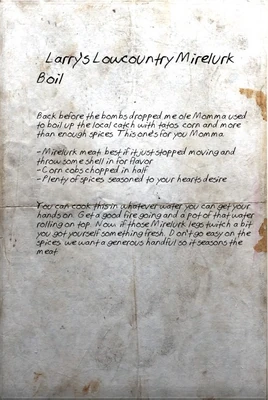 Larry's Lowcountry Mirelurk
Boil
Back before the bombs dropped me ole Momma used
to boil up the local catch with tatos corn and more
than enough spices. This one's for you Momma.
-Mirelurk meat best if it just stopped moving and
throw some shell in for flavor
-Corn cobs chopped in half
-Plenty of spices seasoned to your hearts desire
You can cook this in whatever water you can get your
hands on. Get a good fire going and a pot of that water
rolling on top. Now if those Mirelurk legs twitch a bit
you got yourself something fresh. Don't go easy on the
spices we want a generous handful so it seasons the
meat.